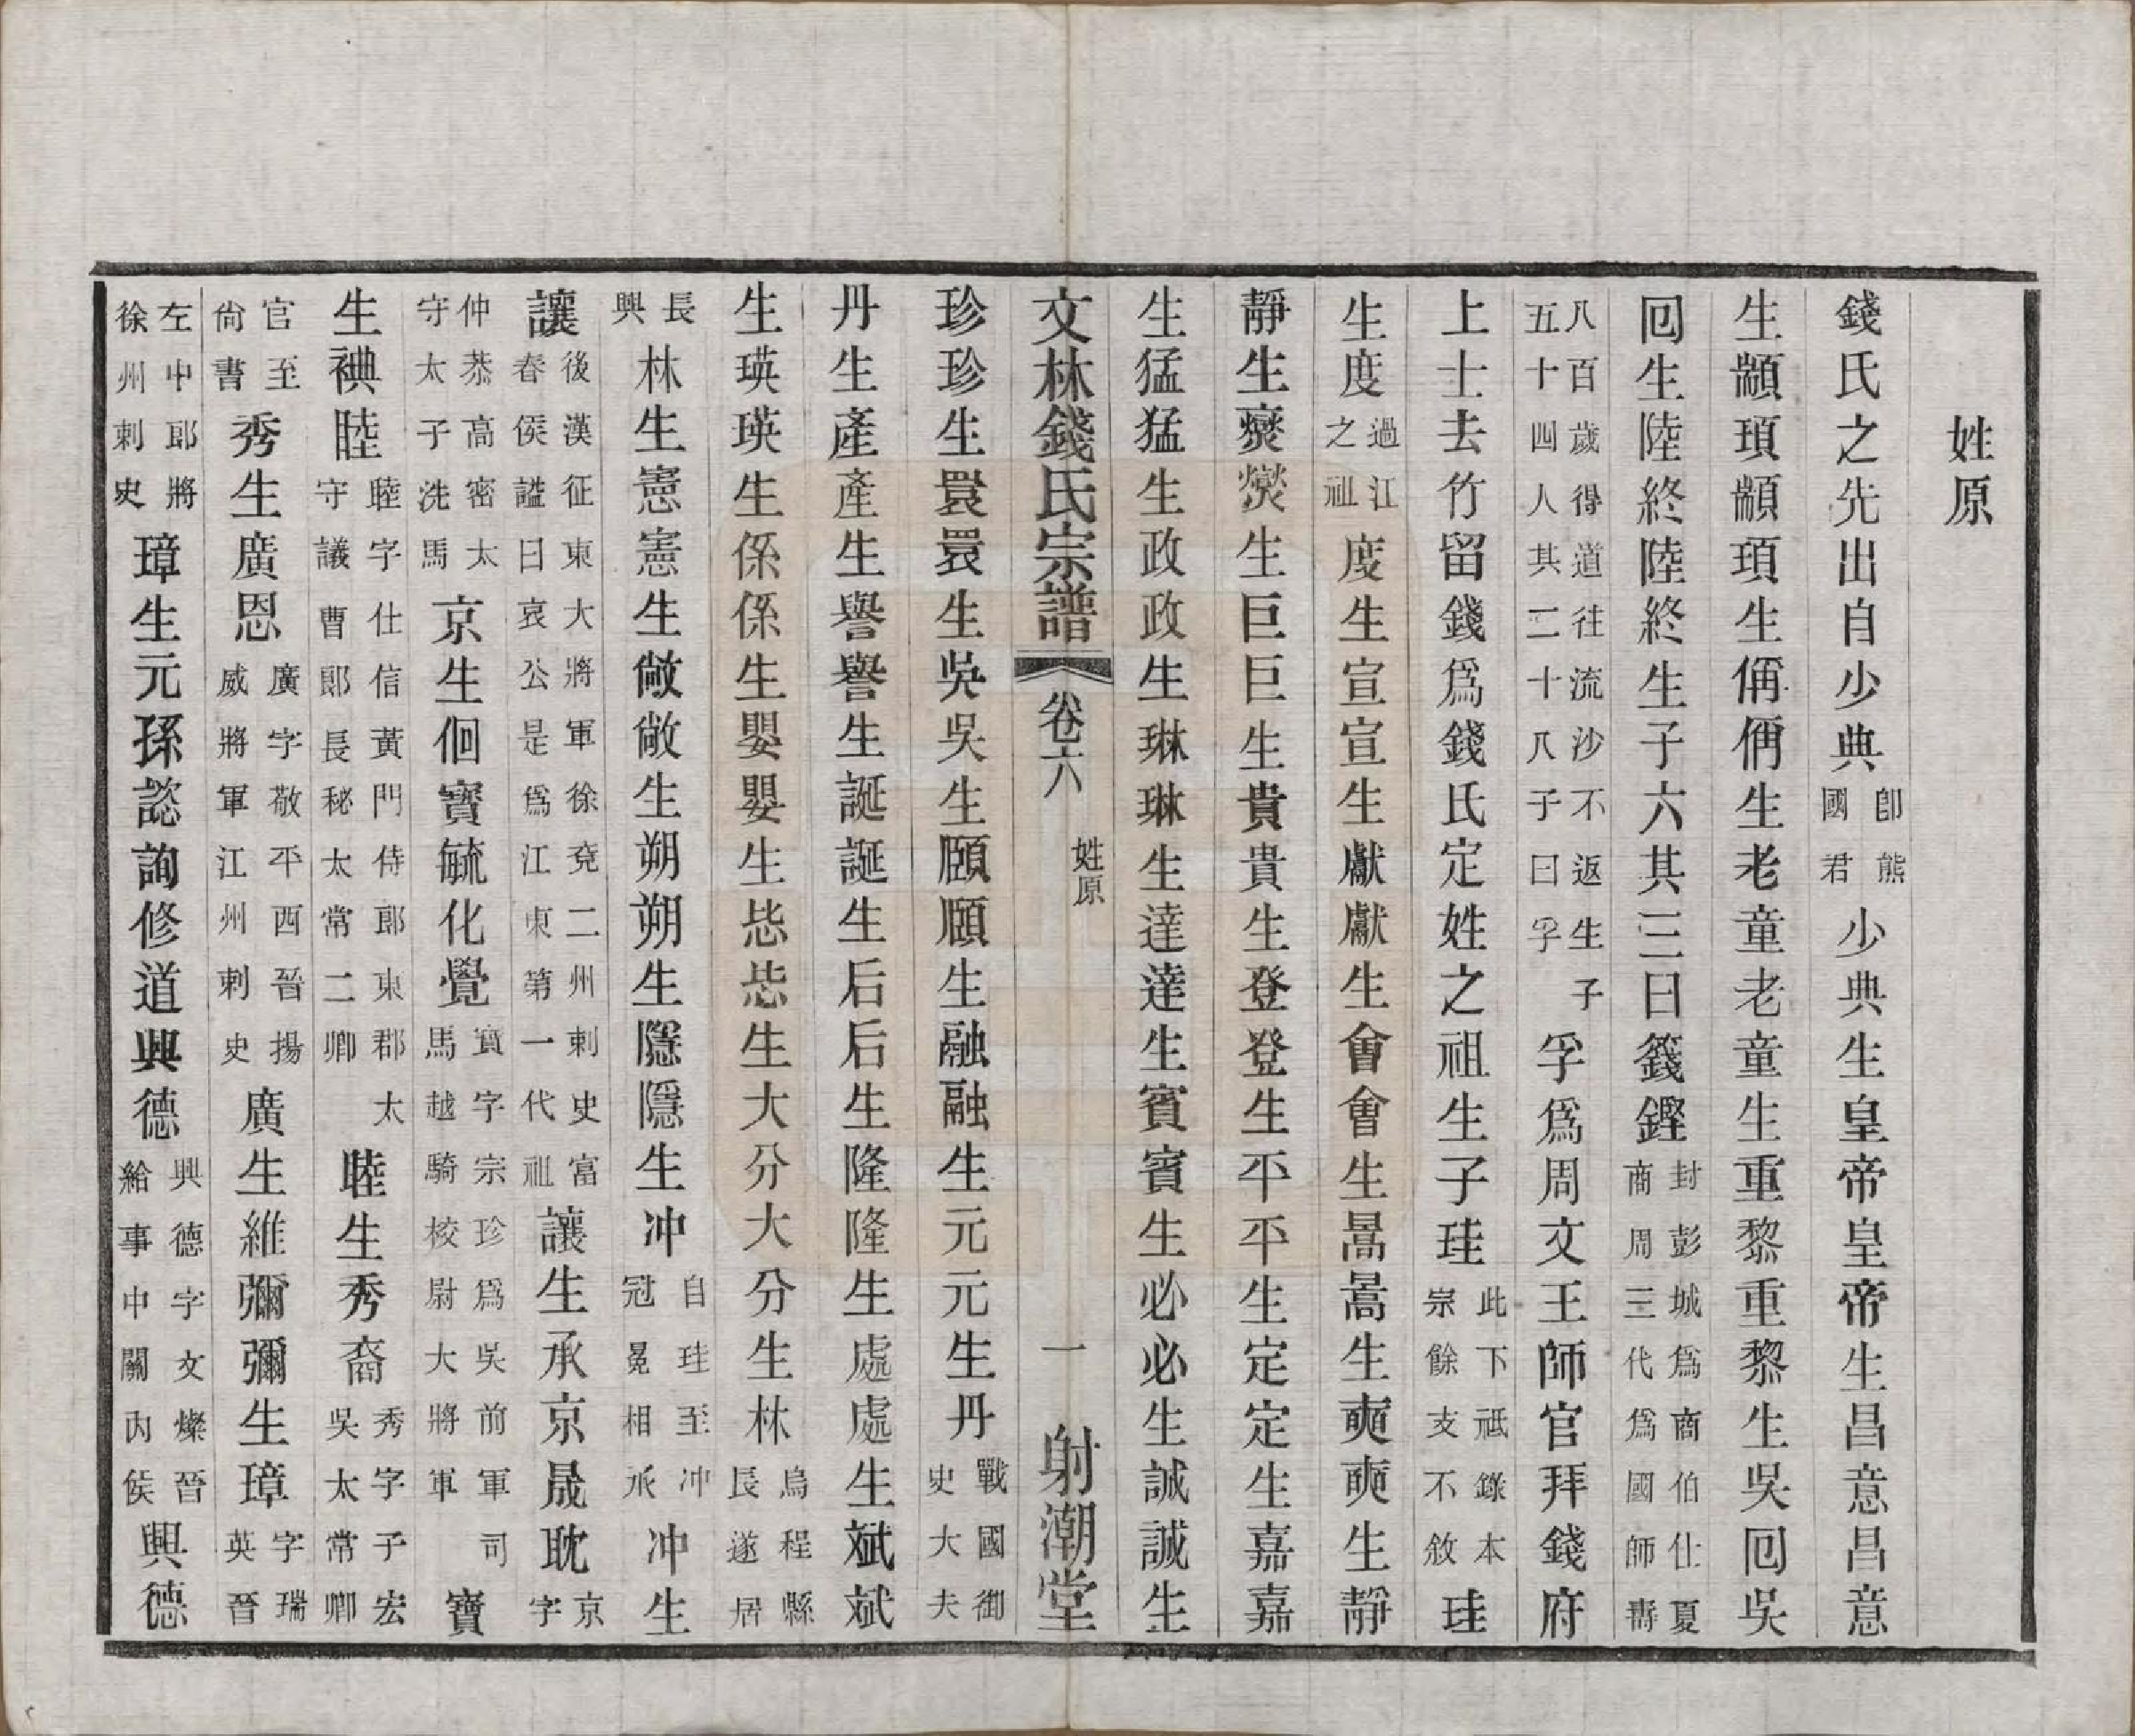 姓原
錢氏之先出自少典卽熊國君少典生皇帝皇帝生昌意昌意
生顓頊顓頊生偁偁生老童老童生重黎重黎生吳囘吳
囘生陸終陸終生子六其三曰籛鏗封彭城爲商伯仕夏商周三代爲國師壽
八百歲得道往流沙不返生子五十四人其二十八子曰孚孚爲周文王師官拜錢府
上士去竹留錢爲錢氏定姓之祖生子珪此下祗錄本宗餘支不敘珪
生度過江之祖度生宣宣生獻獻生會會生暠暠生奭奭生靜
靜生爕爕生巨巨生貴貴生登登生平平生定定生嘉嘉
生猛猛生政政生琳琳生達達生賓賓生必必生誠誠生
文林錢氏宗譜 卷六 姓原 一 射潮堂
珍珍生睘睘生吳吳生頤頤生融融生元元生丹戰國御史大夫
丹生產產生譽譽生誕誕生后后生隆隆生處處生斌斌
生瑛瑛生係係生嬰嬰生恷恷生大分大分生林烏程縣長遂居
長興林生憲憲生敞敞生朔朔生隱隱生冲自珪至冲冠冕相承冲生
讓後漢征東大將軍徐兗二州刺史富春侯諡曰哀公是爲江東第一代祖讓生承京晟耽京字
仲恭高密太守太子洗馬京生佪寶毓化覺寶字宗珍爲吳前軍司馬越騎校尉大將軍寶
生禩睦睦字仕信黃門侍郞東郡太守議曹郞長秘太常二卿睦生秀裔秀字子宏吳太常卿
官至尙書秀生廣恩廣字敬平西晉揚威將軍江州刺史廣生維彌彌生璋字瑞英晉
左中郞將徐州刺史璋生元孫諮詢修道興德興德字文燦晉給事中關內侯興德